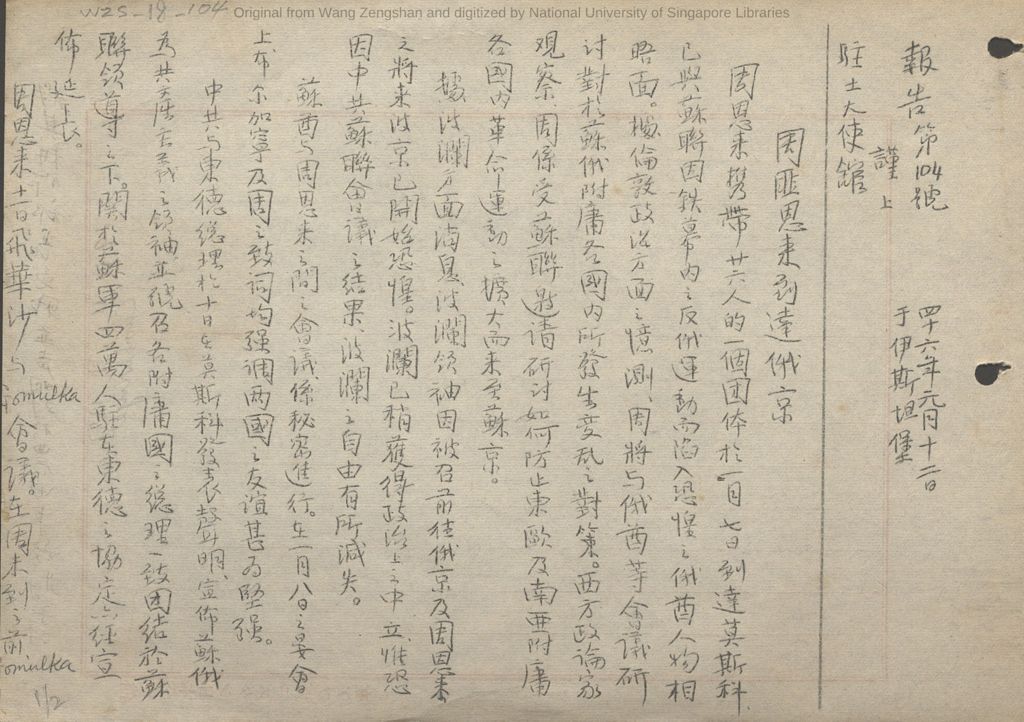 WZS_18_104
Original from Wang Zengshan and digitized by National University of Singapore Libraries
報告第104號
四十六年元月十二日
于伊斯坦堡
謹上
駐土大使館
周匪恩來到達俄京
周恩來携帶廿六人的一個团体於一月七日到達莫斯科,
已與蘇聯因鉄幕內之反俄運動而陷入恐惶之俄酋人物相
晤面。據倫敦政治方面之憶測、周將与俄酋等會議研
討對於蘇俄附庸各國內所發生变乱之對策。西方政論家
观察、周係受蘇聯邀请研讨如何防止東歐及南亜附庸
各國內革命運動之擴大而来至蘇京。
據波瀾方面消息波瀾领袖因被召前往俄京及周恩来
之將来波京已開始恐惶。波瀾已稍獲得政治上之中立、惟恐
因中共蘇聯會議之結果、波瀾之自由有所減失。
蘇酋与周恩来之間之會議係秘密進行。在一月八日之宴會
上布尔加寧及周之致词均强调两國之友谊甚为堅强。
中共与東德總理於十日在莫斯科發表聲明、宣佈蘇俄
為共產主義之领袖並號召各附庸國之總理一致团結於蘇
聯领導之下。關於蘇軍四萬人駐在東德之協定亦經宣
佈延長。
周恩来十一日飛華沙与Gomulka會議。在周未到之前Gomulka
1/2